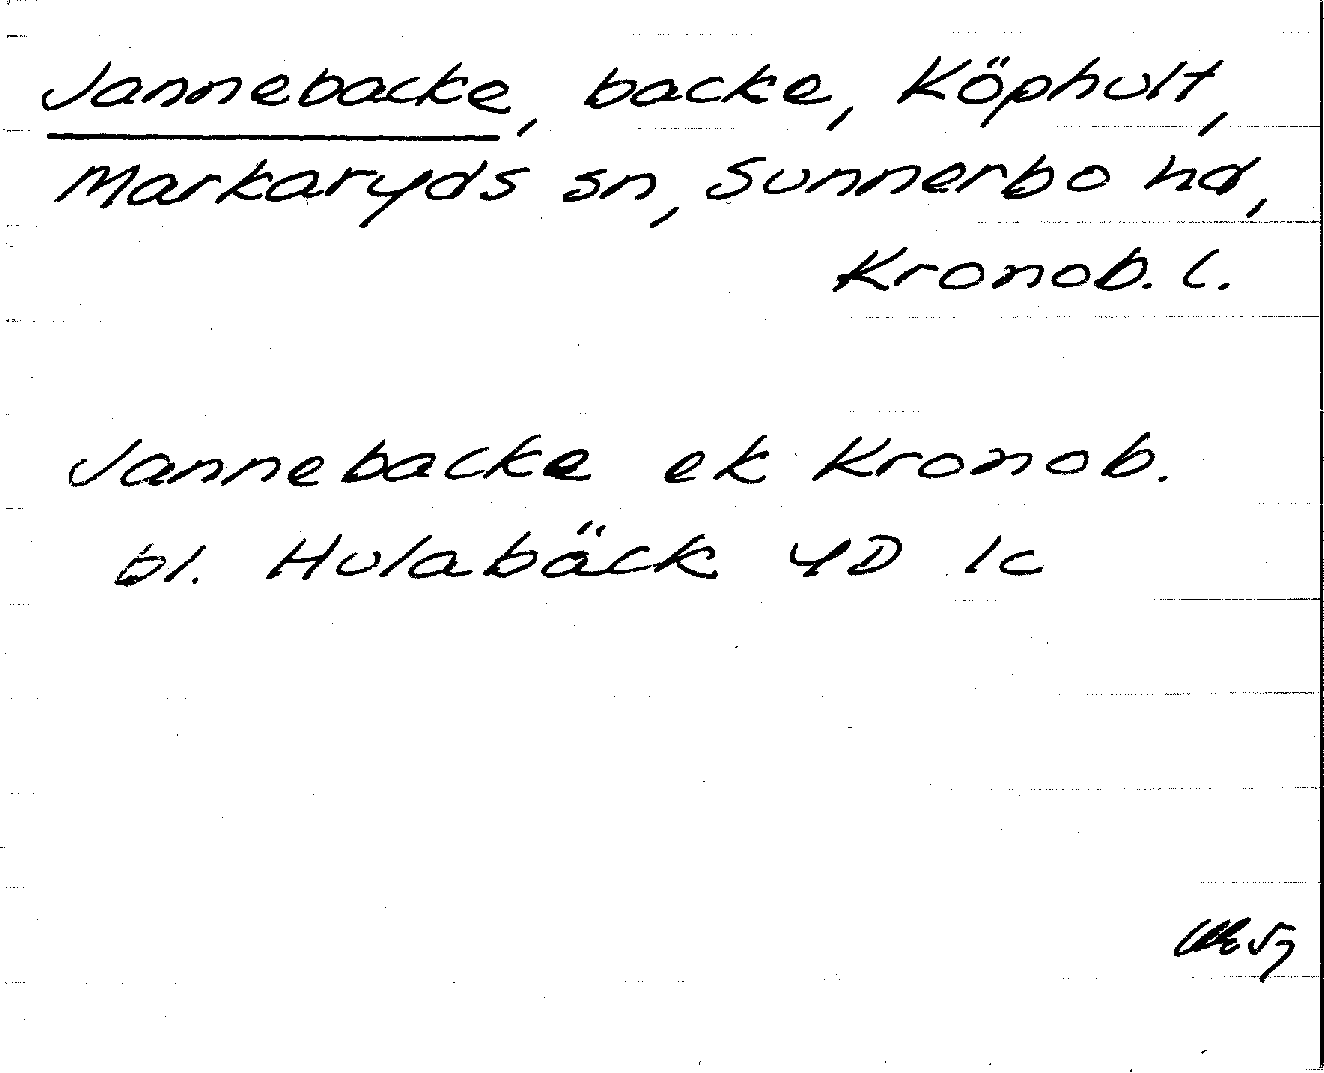 Jannebacke, backe, Köphult,
Markaryds sn, Sunnerbo hd,
Kronob. l.
Jannebacke ek Kronob.
bl. Hulabäck 4D 1c